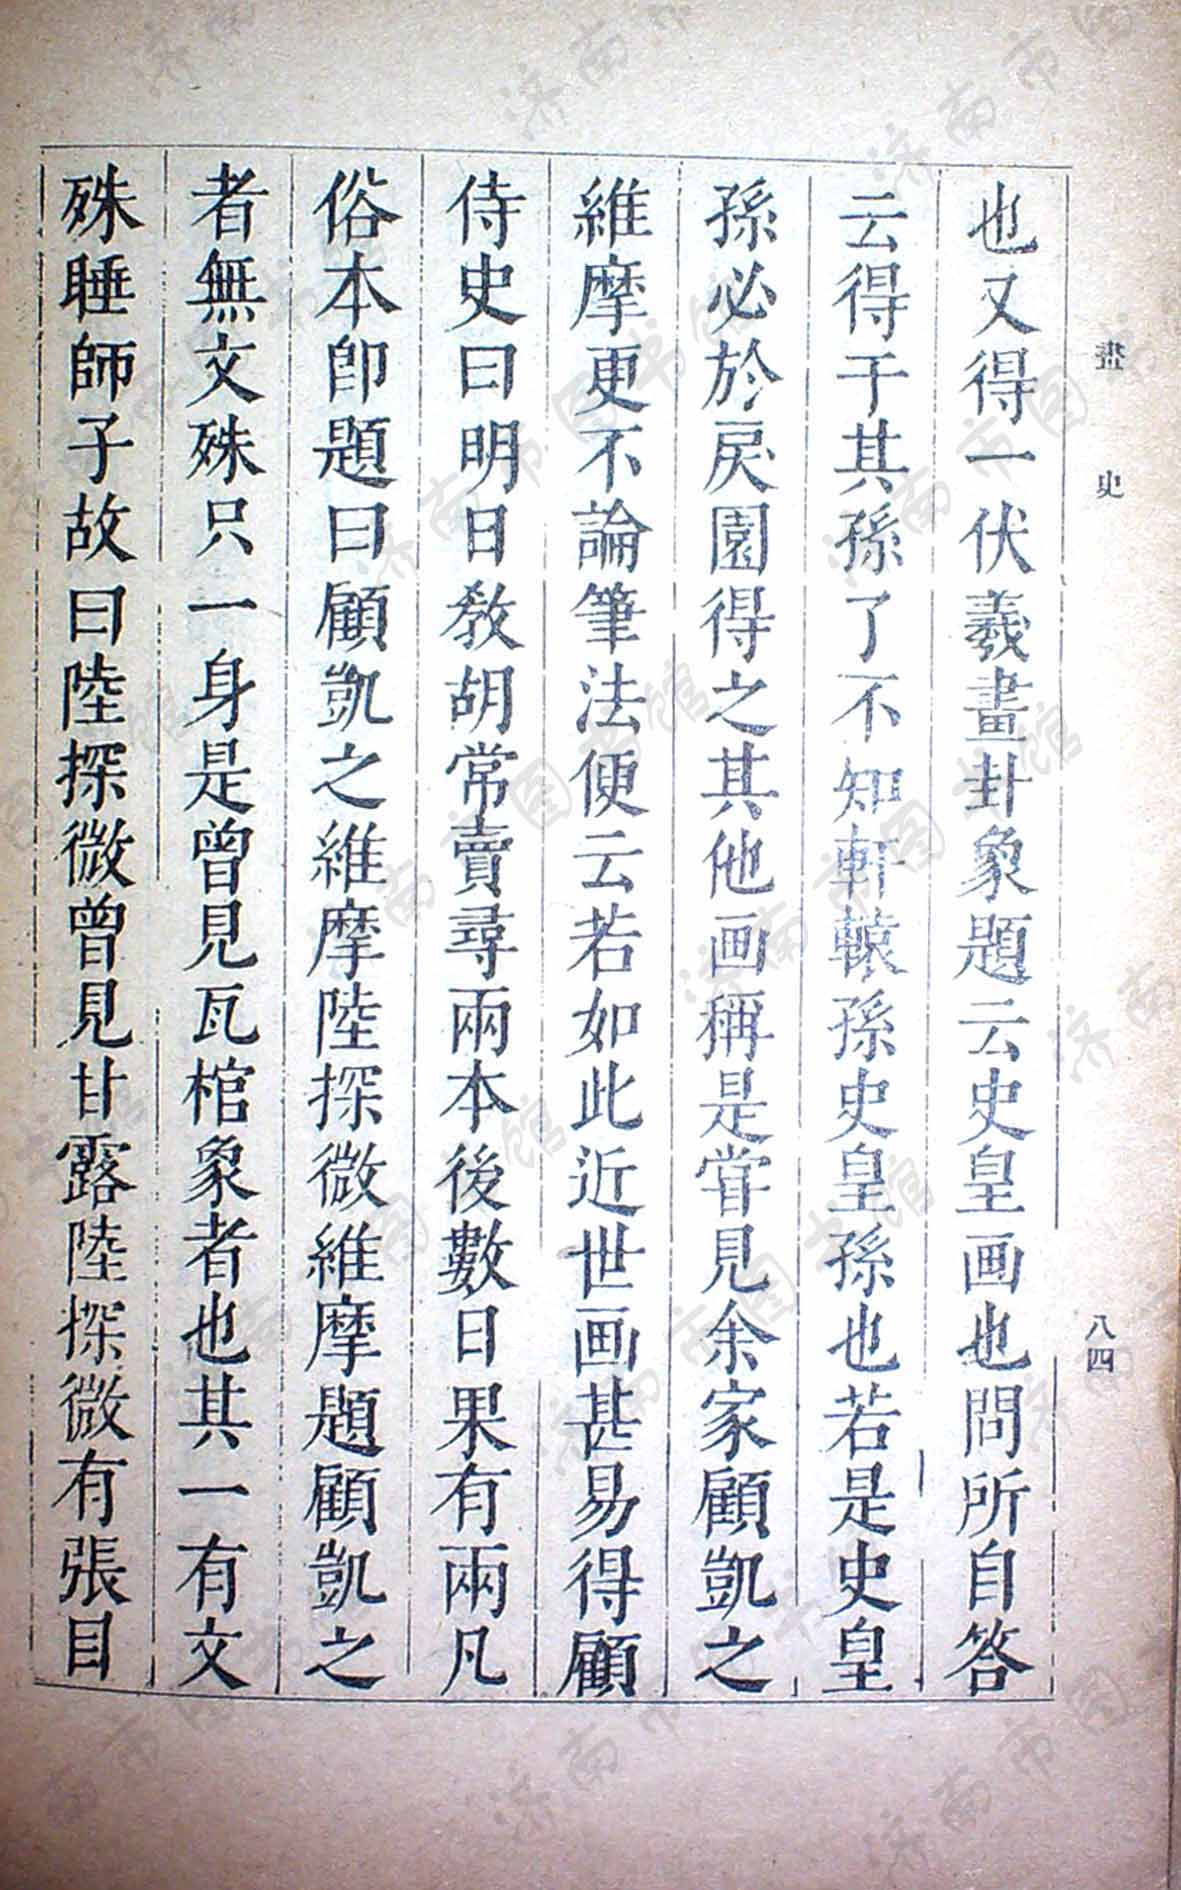 畫史
八四
也又得一伏羲畫卦象題云史皇画也問所自答
云得于其孫了不知軒轅孫史皇孫也若是史皇
孫必於戾園得之其他画稱是甞見余家顧凱之
維摩更不論筆法便云若如此近世画甚易得顧
侍史曰明日敎胡常賣尋兩本後數日果有兩凡
俗本即題曰顧凱之維摩陸探微維摩題顧凱之
者無文殊只一身是曾見瓦棺象者也其一有文
殊睡師子故曰陸探微曾見甘露陸探微有張目
济南市图书馆